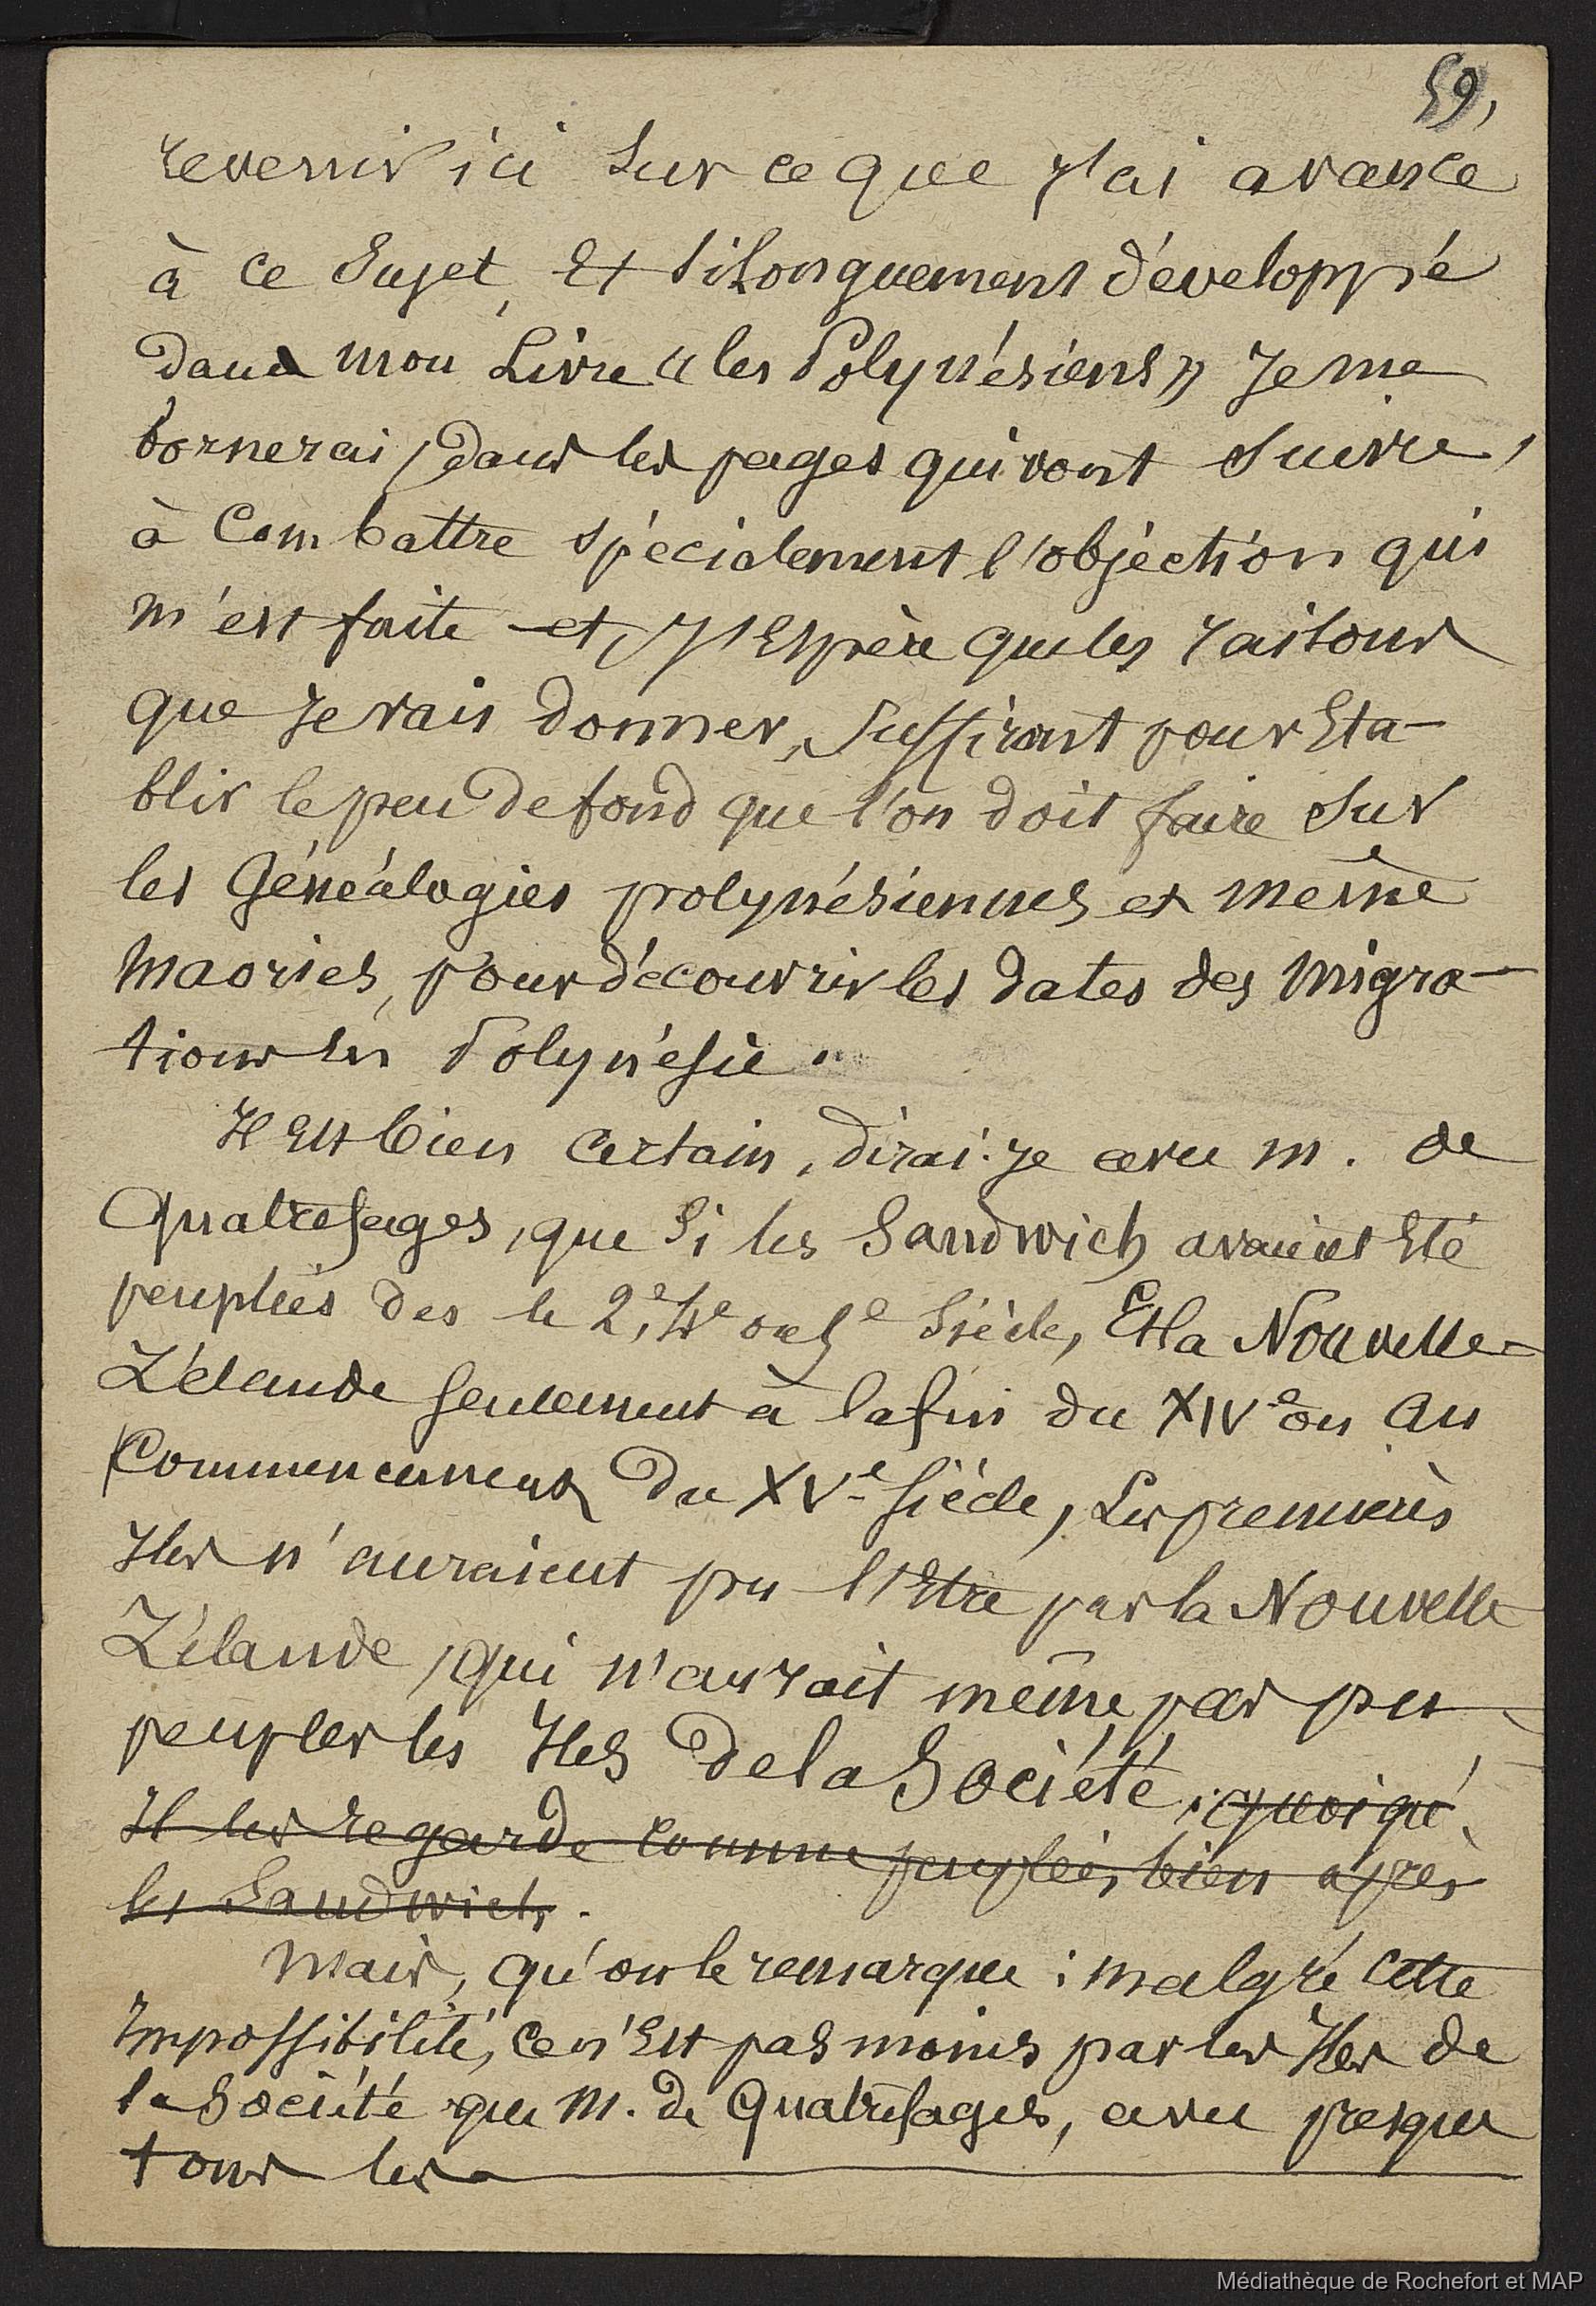 59,
revenir ici sur ce que j'ai avancé
à ce sujet, et si longuement développé
dans mon Livre « les Polynésiens » Je me
bornerai, dans les pages qui vont suivre,
à combattre spécialement l'objection qui
m'est faite et, j'espère que les raisons
que je vais donner, suffiront pour éta-
blir le peu de fond que l'on doit faire sur
les Généalogies polynésiennes et même
maories, pour découvrir les dates des migra-
tions en Polynésie.
Il est bien certain, dirai-je avec M. de
Quatrefages, que si les Sandwich avaient été
peuplées dès le 2e, 4e ou 5e siècle, et la Nouvelle-
Zélande seulement à la fin du XIVe ou au
commencement du XVe siècle, les premières
Iles n'auraient pu l'être par la Nouvelle
Zélande, qui n'aurait même pas pu
peupler les Iles de la Société, quoiqu'
Il les regarde comme peuplées bien après
les Sandwich.
Mais, qu'on le remarque : malgré cette
Impossibilité, ce n'est pas moins par les Iles de
la Société que M. de Quatrefages, avec presque
tous les
Médiathèque de Rochefort et MAP